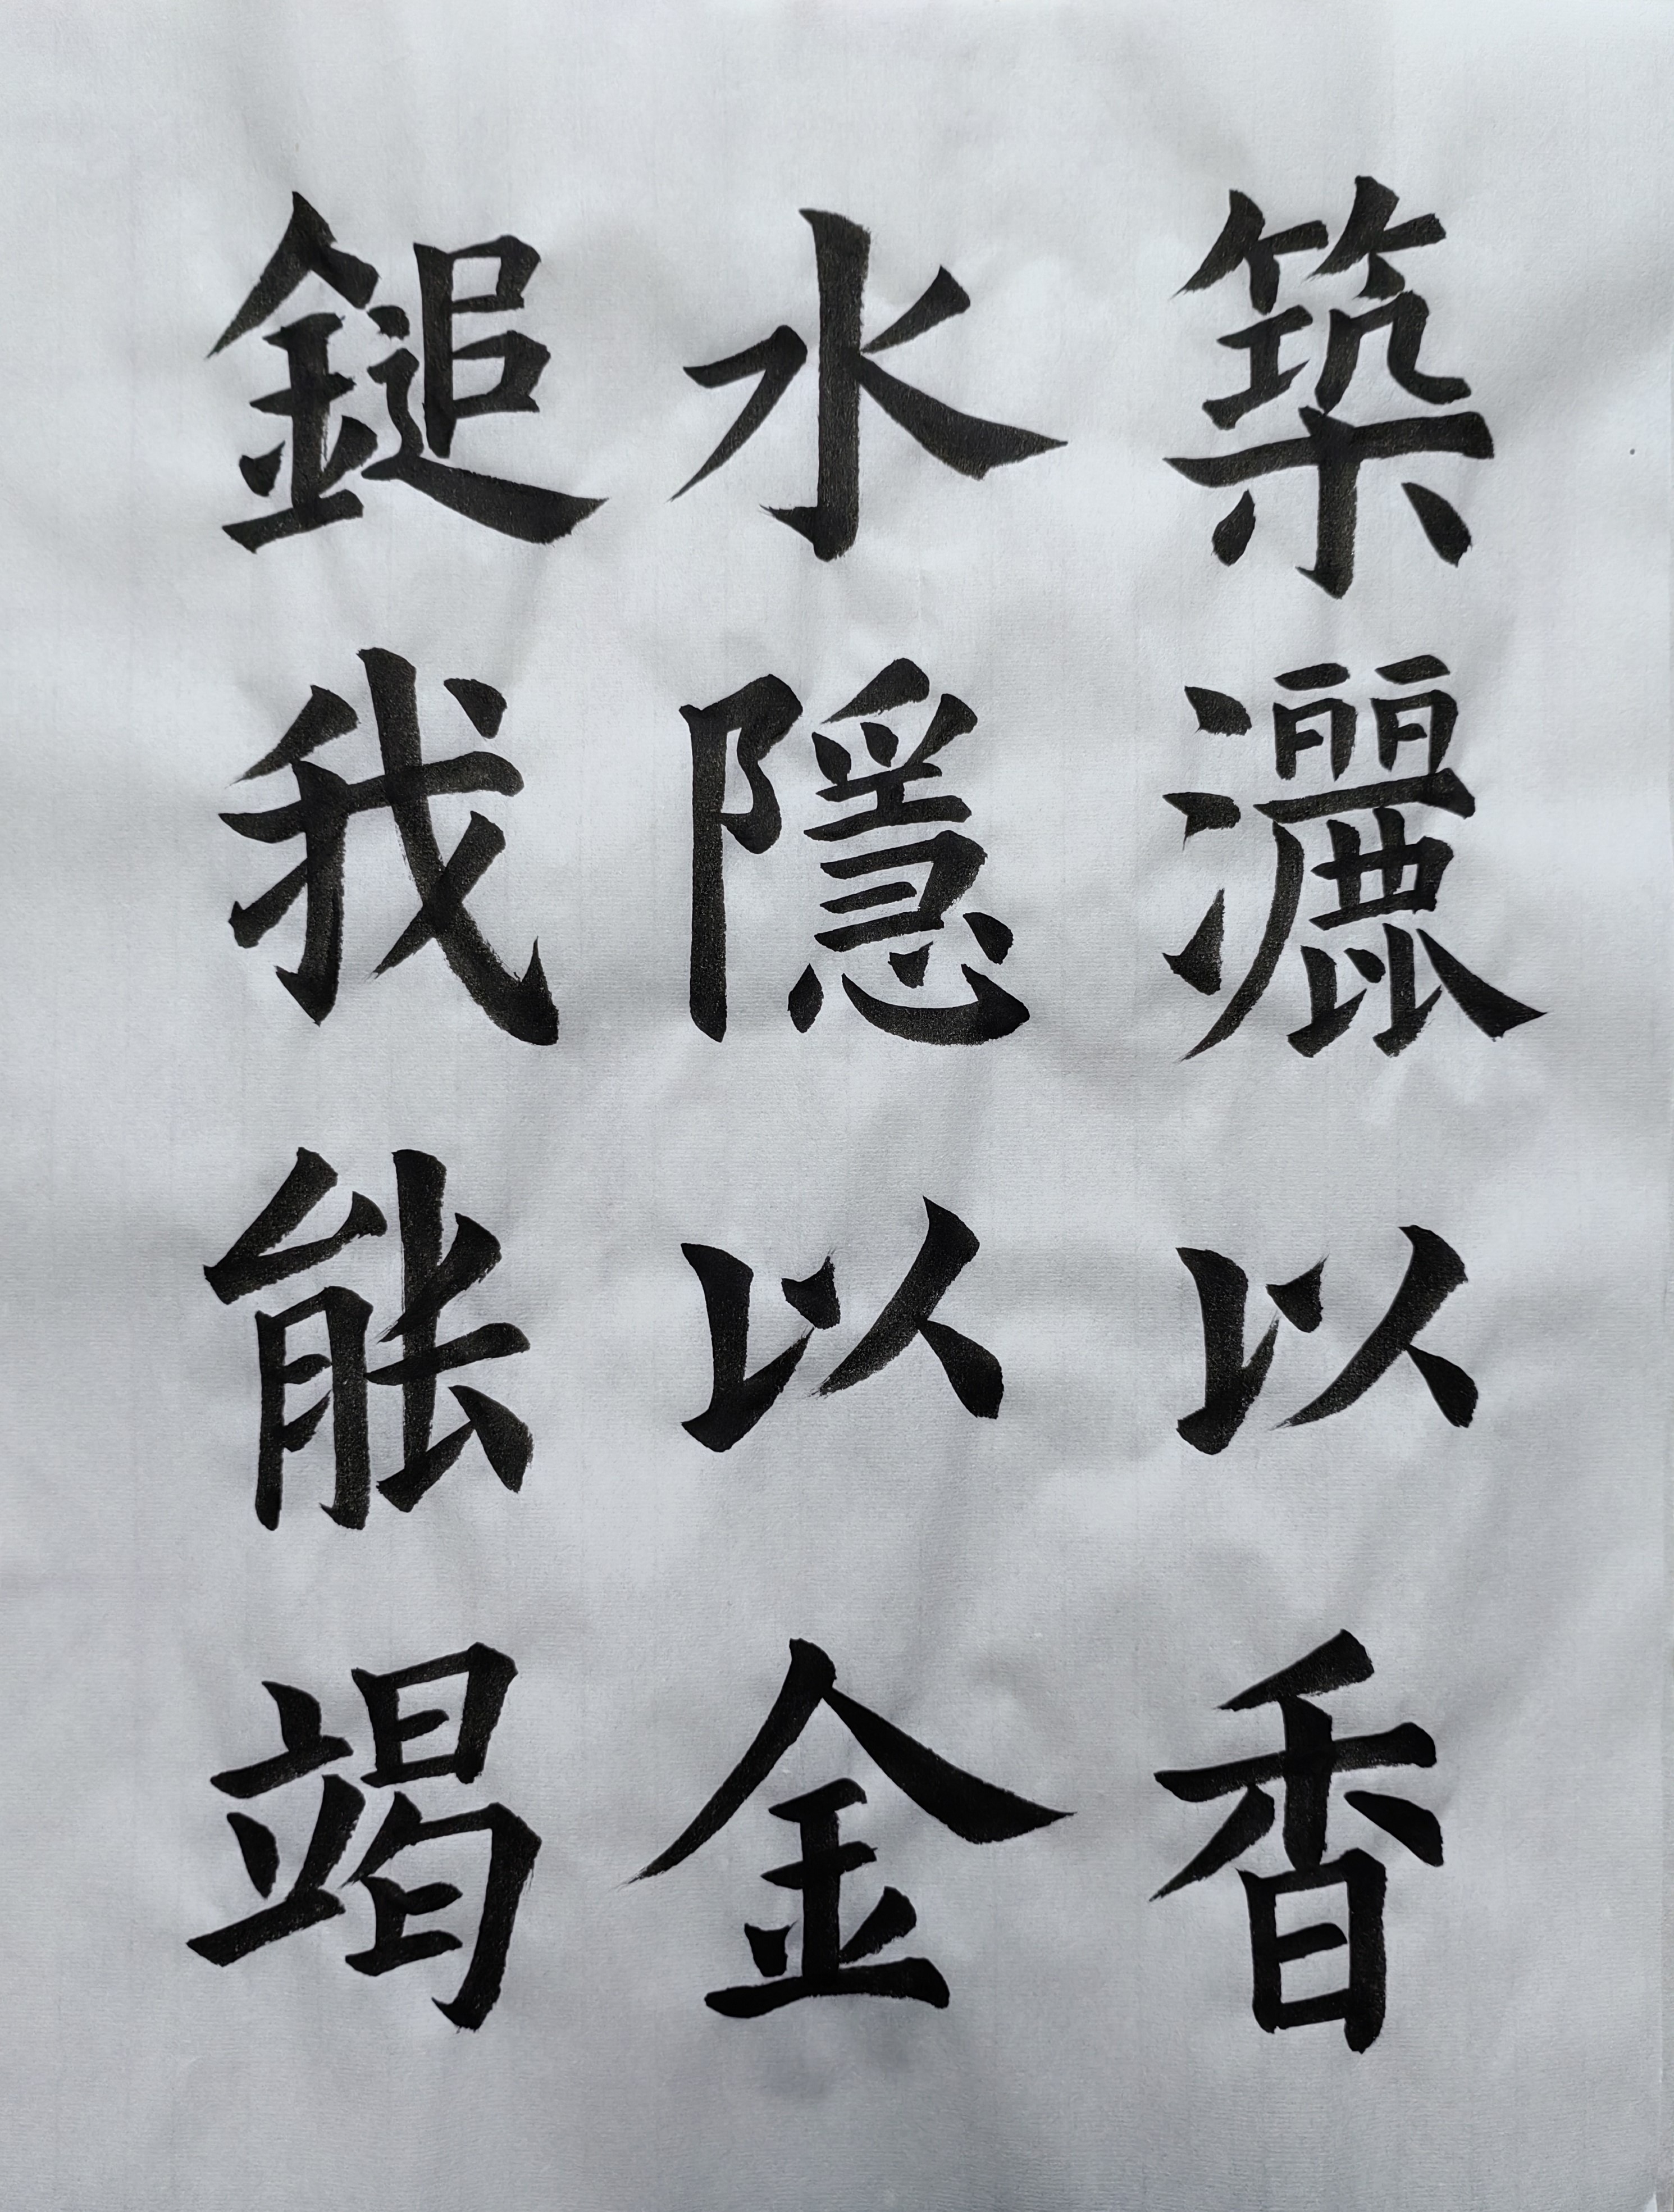 築灑以香
水隱以金
鎚我能竭